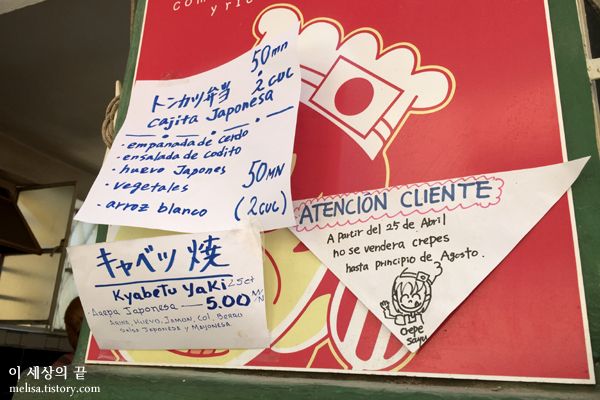 com
y ric
50mn
トンカツ弁当 2 CUC
Cajita Japonesa
· empanada de cerdo
· ensalada de codito
· huevo Japones
· vegetales
· arroz blanco
50 MN
(2 CUC)
キャベツ焼
Kyabetu yaki
25ct
· Arepa Japonesa — 5.00 M/N
Arina, Huevo, Jamon, Col,
Salsa Japonesa y Mayonesa
ATENCIÓN CLIENTE
A partir del 25 de Abril
no se vendera crepes
hasta principio de Agosto.
crepe
Sayu
이 세상의 끝
melisa.tistory.com